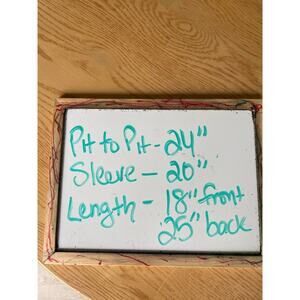 Pit to Pit - 24"
Sleeve - 20"
Length - 18" front
25" back